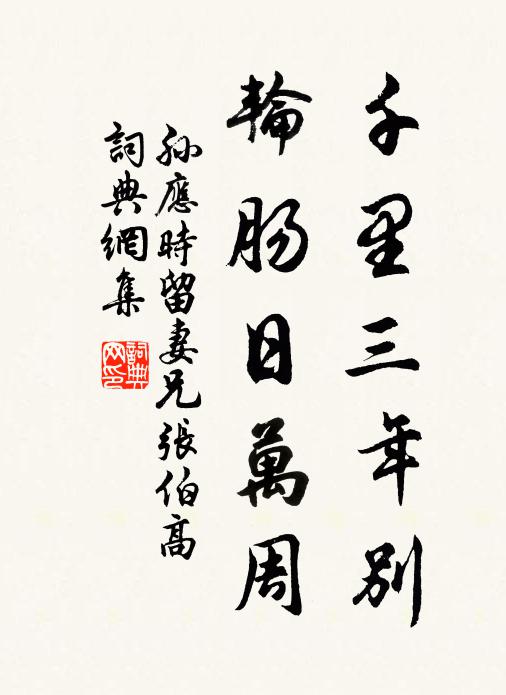 千里三年别
輪肠日萬周
孙應時留妻兄張伯高
詞典網集
詞典网印